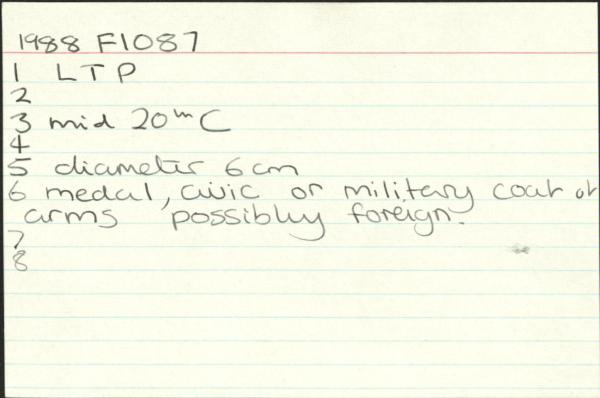 1988 F1087
1 LTP
2
3 mid 20th C
4
5 diameter 6cm
6 medal, civic or military coat of
arms possibly foreign.
7
8